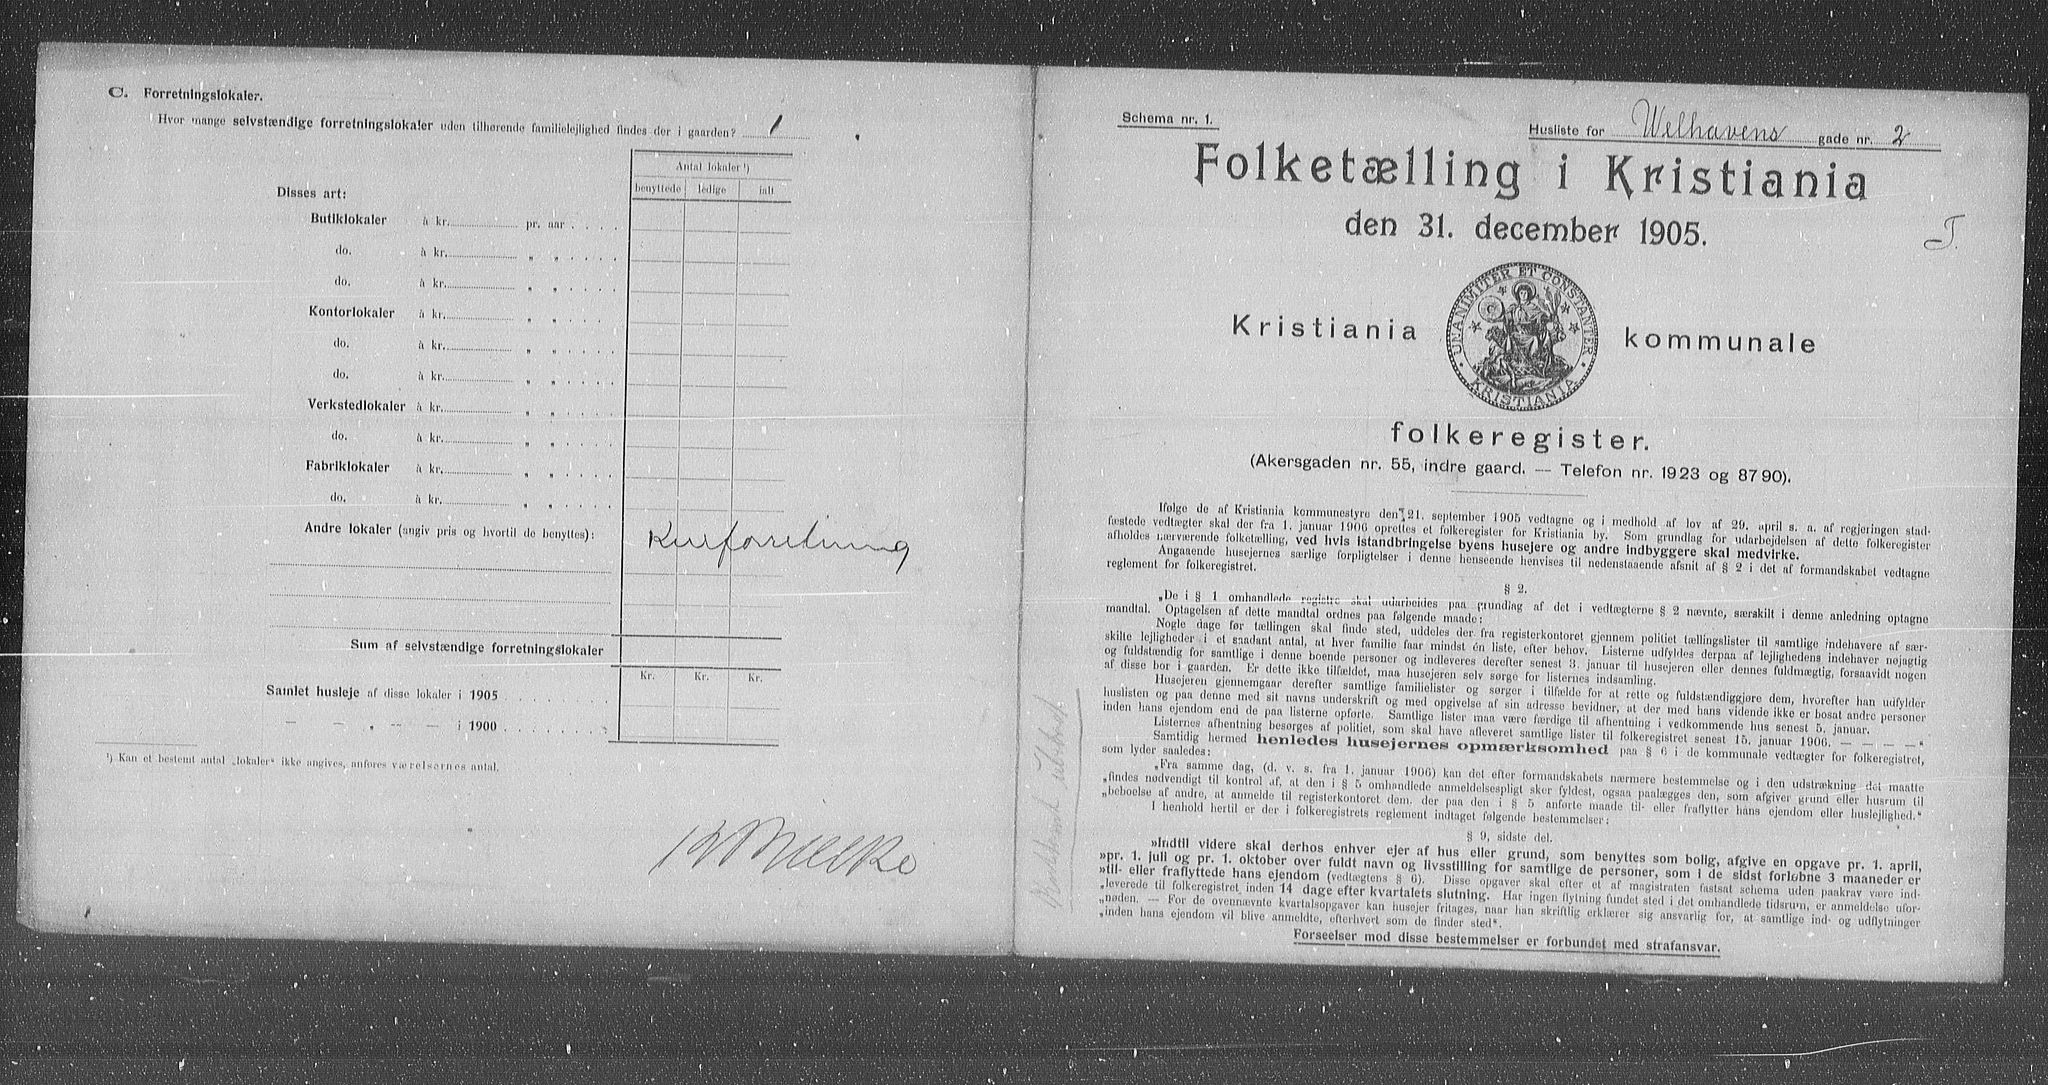 C. Forretningslokaler.
Hvor mange selvstændige forretningslokaler uden tilhørende familielejlighed findes der i gaarden? 1
Antal lokaler ¹)
benyttede ledige ialt
Disses art:
Butiklokaler à kr. pr. aar
do. à kr. „ „
do. à kr. „ „
Kontorlokaler à kr. „ „
do. à kr. „ „
do. à kr. „ „
Verkstedlokaler à kr. „ „
do. à kr. „ „
Fabriklokaler à kr. „ „
do. à kr. „ „
Andre lokaler (angiv pris og hvortil de benyttes):
Sum af selvstændige forretningslokaler
Kr. Kr. Kr.
Samlet husleje af disse lokaler i 1905
— — „ — — i 1900
¹) Kan et bestemt antal „lokaler“ ikke angives, anføres værelsernes antal.
Schema nr. 1.
Husliste for Welhavens gade nr. 2
Folketælling i Kristiania
den 31. december 1905.
UNANIMITER ET CONSTANTER
KRISTIANIA
Kristiania kommunale
folkeregister.
(Akersgaden nr. 55, indre gaard. — Telefon nr. 1923 og 8790).
Ifølge de af Kristiania kommunestyre den 21. september 1905 vedtagne og i medhold af lov af 29. april s. a. af regjeringen stad-
fæstede vedtægter skal der fra 1. januar 1906 oprettes et folkeregister for Kristiania by. Som grundlag for udarbejdelsen af dette folkeregister
afholdes nærværende folketælling, ved hvis istandbringelse byens husejere og andre indbyggere skal medvirke.
Angaaende husejernes særlige forpligtelser i denne henseende henvises til nedenstaaende afsnit af § 2 i det af formandskabet vedtagne
reglement for folkeregistret.
§ 2.
„De i § 1 omhandlede registre skal udarbeides paa grundlag af det i vedtægterne § 2 nævnte, særskilt i denne anledning optagne
mandtal. Optagelsen af dette mandtal ordnes paa følgende maade:
Nogle dage før tællingen skal finde sted, uddeles der fra registerkontoret gjennem politiet tællingslister til samtlige indehavere af sær-
skilte lejligheder i et saadant antal, at hver familie faar mindst én liste, efter behov. Listerne udfyldes derpaa af lejlighedens indehaver nøjagtig
og fuldstændig for samtlige i denne boende personer og indleveres derefter senest 3. januar til husejeren eller dennes fuldmægtig, forsaavidt nogen
af disse bor i gaarden. Er dette ikke tilfældet, maa husejeren selv sørge for listernes indsamling.
Husejeren gjennemgaar derefter samtlige familielister og sørger i tilfælde for at rette og fuldstændiggjøre dem, hvorefter han udfylder
huslisten og paa denne med sit navns underskrift og med opgivelse af sin adresse bevidner, at der med hans vidende ikke er bosat andre personer
inden hans ejendom end de paa listerne opførte. Samtlige lister maa være færdige til afhentning i vedkommende hus senest 5. januar.
Listernes afhentning besørges af politiet, som skal have afleveret samtlige lister til folkeregistret senest 15. januar 1906. — — — —“
Samtidig hermed henledes husejernes opmærksomhed paa § 6 i de kommunale vedtægter for folkeregistret,
som lyder saaledes:
„Fra samme dag, (d. v. s. fra 1. januar 1906) kan det efter formandskabets nærmere bestemmelse og i den udstrækning det maatte
„findes nødvendigt til kontrol af, at den i § 5 omhandlede anmeldelsespligt sker fyldest, ogsaa paalægges den, som afgiver grund eller husrum til
„beboelse af andre, at anmelde til registerkontoret dem, der paa den i § 5 anførte maade til- eller fraflytter hans ejendom eller huslejlighed.“
I henhold hertil er der i folkeregistrets reglement indtaget følgende bestemmelser:
§ 9, sidste del.
»Indtil videre skal derhos enhver ejer af hus eller grund, som benyttes som bolig, afgive en opgave pr. 1. april,
»pr. 1. juli og pr. 1. oktober over fuldt navn og livsstilling for samtlige de personer, som i de sidst forløbne 3 maaneder er
»til- eller fraflyttede hans ejendom (vedtægtens § 6). Disse opgaver skal efter et af magistraten fastsat schema uden paakrav være ind-
„leverede til folkeregistret inden 14 dage efter kvartalets slutning. Har ingen flytning fundet sted i det omhandlede tidsrum, er anmeldelse ufor-
„nøden. — For de ovennævnte kvartalsopgaver kan husejer fritages, naar han skriftlig erklærer sig ansvarlig for, at samtlige ind- og udflytninger
„inden hans ejendom vil blive anmeldte, efterhvert som de finder sted“.
Forseelser mod disse bestemmelser er forbundet med strafansvar.